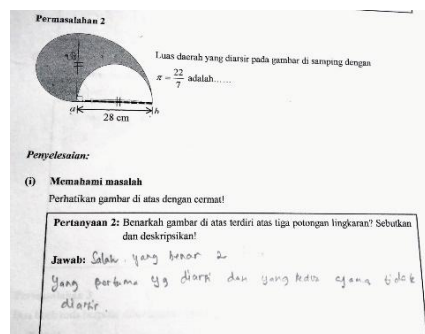 Permasalahan 2
Luas daerah yang diarsir pada gambar di samping dengan
π = 22/7 adalah......
a
b
28 cm
Penyelesaian:
(i) Memahami masalah
Perhatikan gambar di atas dengan cermat!
Pertanyaan 2: Benarkah gambar di atas terdiri atas tiga potongan lingkaran? Sebutkan
dan deskripsikan!
Jawab: Salah. yang benar 2
Yang pertama yg diarsir dan yang kedua tidak
diarsir